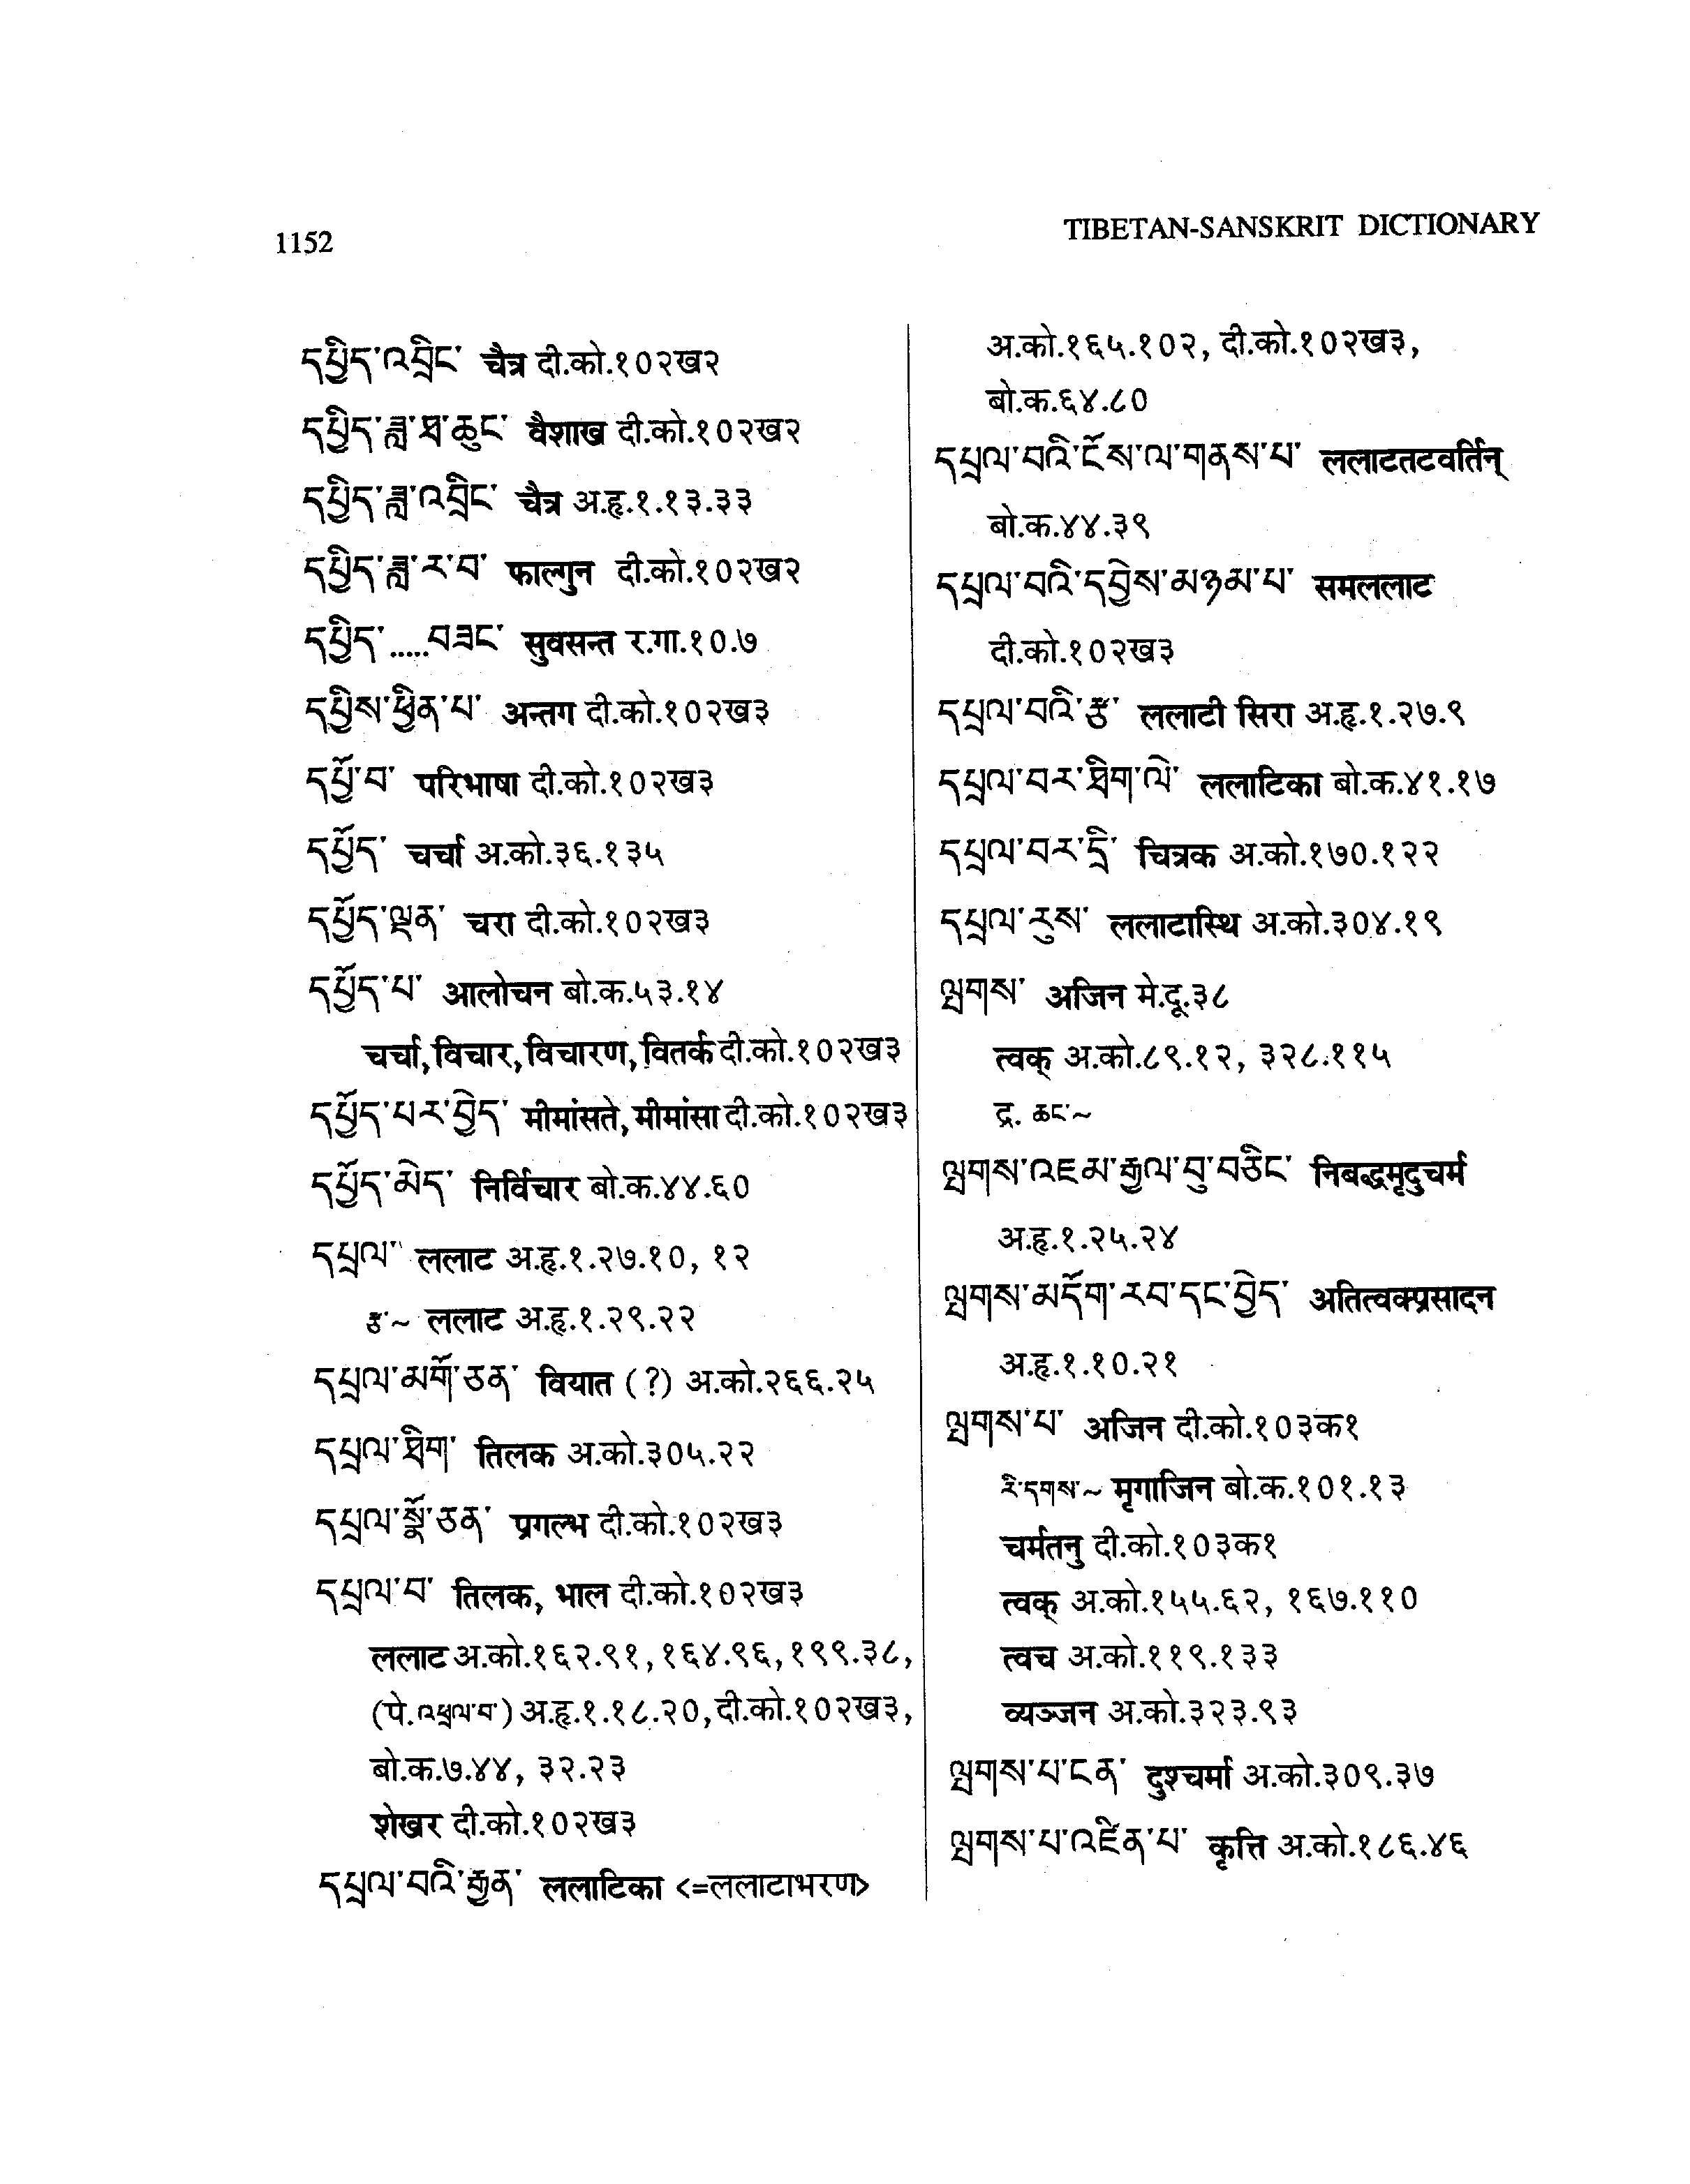 1152
TIBETAN-SANSKRIT DICTIONARY
དཔྱིད་འབྲིང་ चैत्र दी.को.१०२ख२
དཔྱིད་ཟླ་ཐ་ཆུང་ वैशाख दी.को.१०२ख२
དཔྱིད་ཟླ་འབྲིང་ चैत्र अ.हृ.१.१३.३३
དཔྱིད་ཟླ་ར་བ་ फाल्गुन दी.को.१०२ख२
དཔྱིད་.....བཟང་ सुवसन्त र.गा.१०.७
དཔྱིས་ཕྱིན་པ་ अन्तग दी.को.१०२ख३
དཔྱོ་བ་ परिभाषा दी.को.१०२ख३
དཔྱོད་ चर्चा अ.को.३६.१३५
དཔྱོད་ལྡན་ चरा दी.को.१०२ख३
དཔྱོད་པ་ आलोचन बो.क.५३.१४
चर्चा, विचार, विचारण, वितर्क दी.को.१०२ख३
དཔྱོད་པར་བྱེད་ मीमांसते, मीमांसा दी.को.१०२ख३
དཔྱོད་མེད་ निर्विचार बो.क.४४.६०
དཔྲལ་ ललाट अ.हृ.१.२७.१०, १२
རྩ་~ ललाट अ.हृ.१.२९.२२
དཔྲལ་མགོ་ཅན་ वियात (?) अ.को.२६६.२५
དཔྲལ་ཐིག་ तिलक अ.को.३०५.२२
དཔྲལ་སྣོ་ཅན་ प्रगल्भ दी.को.१०२ख३
དཔྲལ་བ་ तिलक, भाल दी.को.१०२ख३
ललाट अ.को.१६२.९१, १६४.९६, १९९.३८,
(पे.འཕྲལ་བ་) अ.हृ.१.१८.२०, दी.को.१०२ख३,
बो.क.७.४४, ३२.२३
शेखर दी.को.१०२ख३
དཔྲལ་བའི་རྒྱན་ ललाटिका <=ललाटाभरण>
अ.को.१६५.१०२, दी.को.१०२ख३,
बो.क.६४.८०
དཔྲལ་བའི་ངོས་ལ་གནས་པ་ ललाटतटवर्तिन्
बो.क.४४.३९
དཔྲལ་བའི་དབྱེས་མཉམ་པ་ समललाट
दी.को.१०२ख३
དཔྲལ་བའི་རྩ་ ललाटी सिरा अ.हृ.१.२७.९
དཔྲལ་བར་ཐིག་ལེ་ ललाटिका बो.क.४१.१७
དཔྲལ་བར་དྲི་ चित्रक अ.को.१७०.१२२
དཔྲལ་རུས་ ललाटास्थि अ.को.३०४.१९
ལྤགས་ अजिन मे.दू.३८
त्वक् अ.को.८९.१२, ३२८.११५
द्र. ཆང་~
ལྤགས་འཇམ་རྒྱལ་བུ་བཅིང་ निबद्धमृदुचर्म
अ.हृ.१.२५.२४
ལྤགས་མདོག་རབ་དང་བྱེད་ अतित्वक्प्रसादन
अ.हृ.१.१०.२१
ལྤགས་པ་ अजिन दी.को.१०३क१
རི་དགས་~ मृगाजिन बो.क.१०१.१३
चर्मतनु दी.को.१०३क१
त्वक् अ.को.१५५.६२, १६७.११०
त्वच अ.को.११९.१३३
व्यञ्जन अ.को.३२३.९३
ལྤགས་པ་ངན་ दुश्चर्मा अ.को.३०९.३७
ལྤགས་པ་འཛིན་པ་ कृत्ति अ.को.१८६.४६